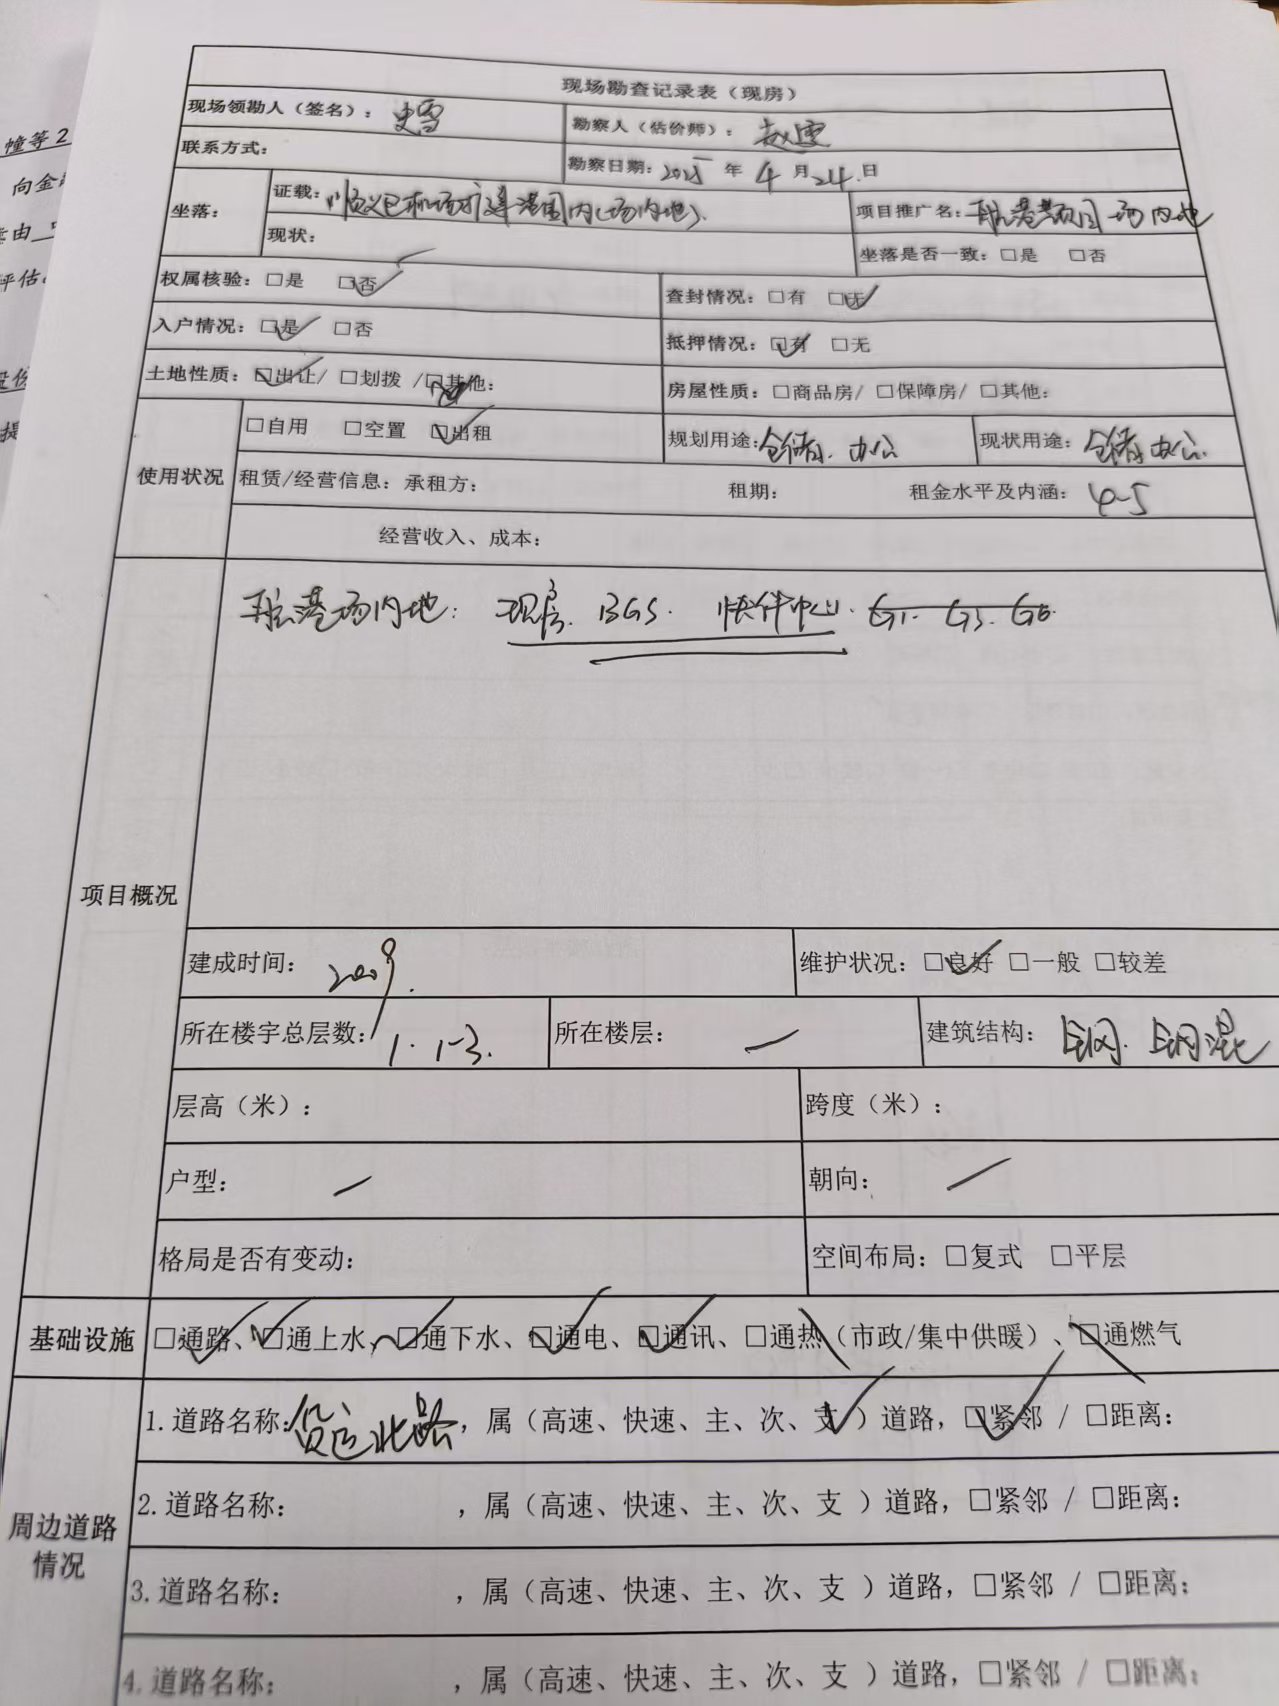 幢等2
向金
由
评估
提
现场勘查记录表（现房）
现场领勘人（签名）： 史雪
勘察人（估价师）： 赵雯
联系方式：
勘察日期：2025年4月24日
坐落：
证载：顺义区机场 港园内(场内地).
项目推广名：航港园 场内地
现状：
坐落是否一致：□是 □否
权属核验：□是 ☑否
查封情况：□有 ☑无
入户情况：☑是 □否
抵押情况：☑有 □无
土地性质：☑出让/ □划拨 /□其他：
房屋性质：□商品房/ □保障房/ □其他：
使用状况
□自用 □空置 ☑出租
规划用途：仓储、办公
现状用途：仓储、办公.
租赁/经营信息：承租方： 租期： 租金水平及内涵：4-5
经营收入、成本：
项目概况
航港场内地：现房. BGS. 快件中心. G1. G3. G6.
建成时间：2009.
维护状况：☑良好 □一般 □较差
所在楼宇总层数：1. 1-3.
所在楼层：—
建筑结构：钢. 钢混
层高（米）：
跨度（米）：
户型：—
朝向：—
格局是否有变动：
空间布局：□复式 □平层
基础设施
☑通路、☑通上水、☑通下水、☑通电、☑通讯、□通热（市政/集中供暖）、□通燃气
周边道路情况
1.道路名称：货运北路，属（高速、快速、主、次、支✓）道路，☑紧邻 / □距离：
2.道路名称： ，属（高速、快速、主、次、支 ）道路，□紧邻 / □距离：
3.道路名称： ，属（高速、快速、主、次、支 ）道路，□紧邻 / □距离：
4.道路名称： ，属（高速、快速、主、次、支 ）道路，□紧邻 / □距离：